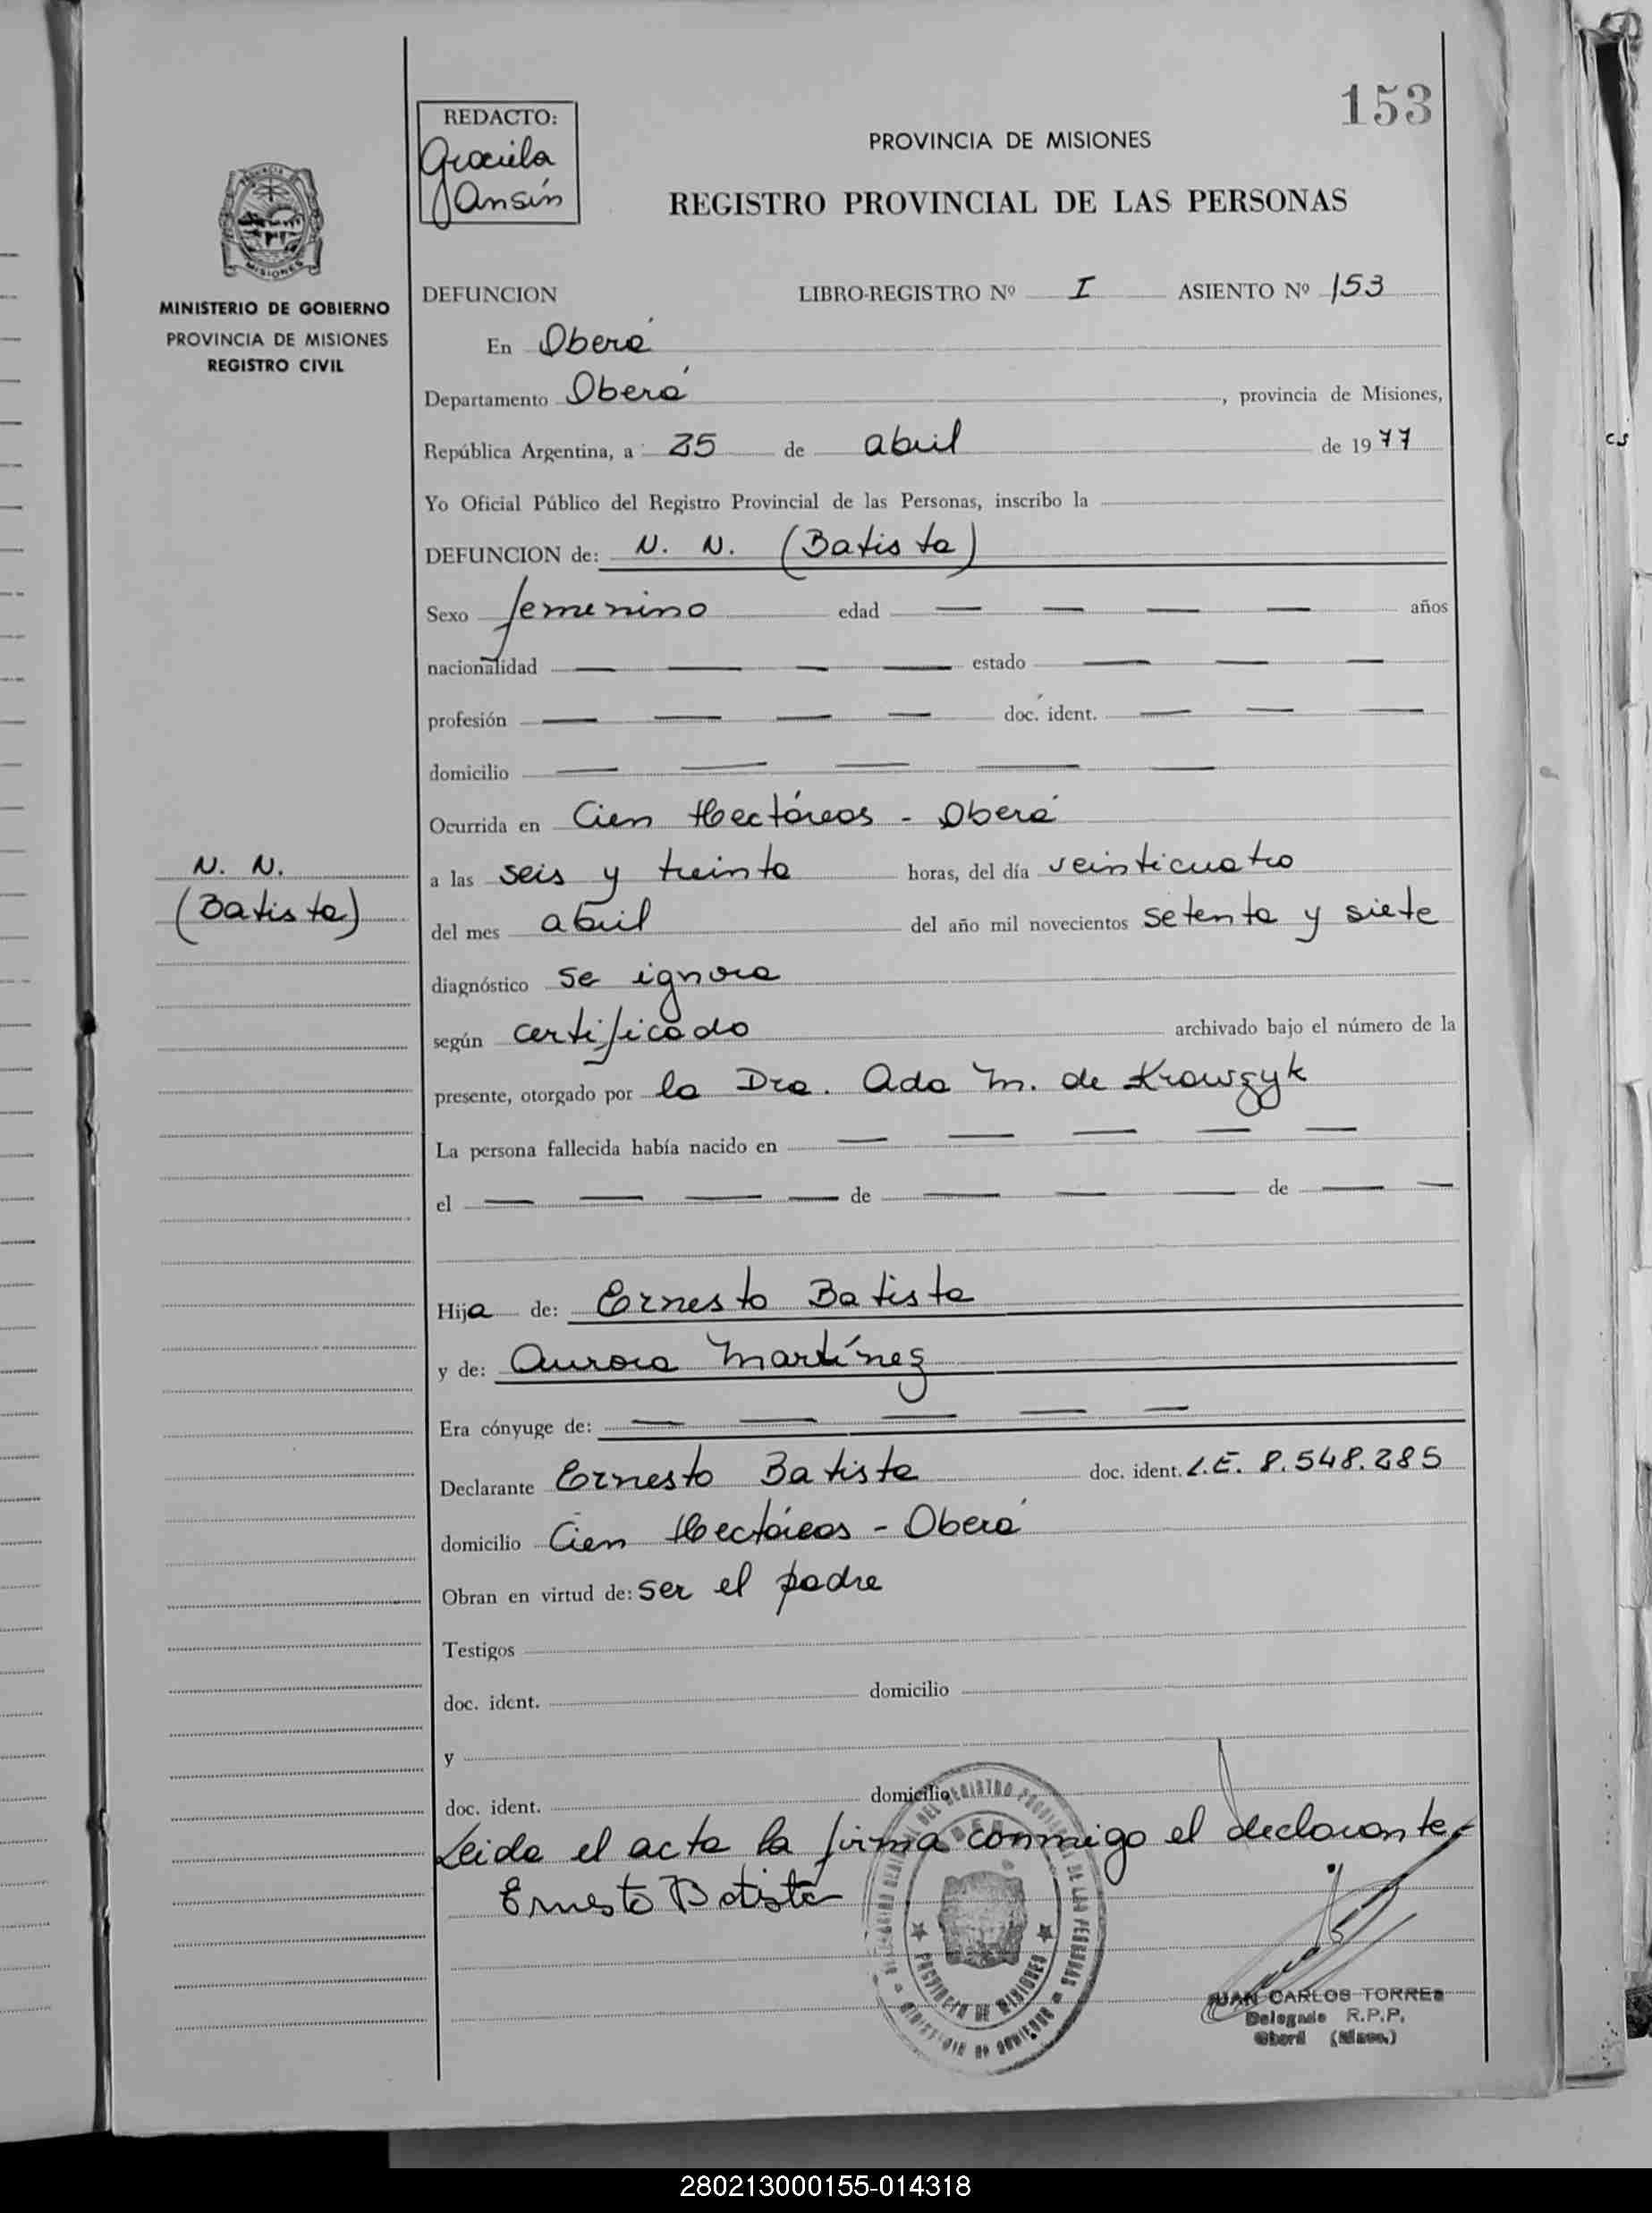 153
REDACTO:
Graciela
Ansín
PROVINCIA DE MISIONES
REGISTRO PROVINCIAL DE LAS PERSONAS
MISIONES
MINISTERIO DE GOBIERNO
PROVINCIA DE MISIONES
REGISTRO CIVIL
DEFUNCION LIBRO-REGISTRO Nº I ASIENTO Nº 153
En Oberá
Departamento Oberá, provincia de Misiones,
República Argentina, a 25 de abril de 1977
Yo Oficial Público del Registro Provincial de las Personas, inscribo la
DEFUNCION de: N. N. (Batista)
Sexo femenino edad — — — — años
nacionalidad — — — — estado — — —
profesión — — — — doc. ident. — — —
domicilio — — — — —
Ocurrida en Cien Hectáreas - Oberá
N. N.
(Batista)
a las seis y treinta horas, del día veinticuatro
del mes abril del año mil novecientos setenta y siete
diagnóstico se ignora
según certificado archivado bajo el número de la
presente, otorgado por la Dra. Ada M. de Krawzyk
La persona fallecida había nacido en — — — — —
el — — — — de — — — de — —
Hija de: Ernesto Batista
y de: Aurora Martínez
Era cónyuge de: — — — — —
Declarante Ernesto Batista doc. ident. L.E. 8.548.285
domicilio Cien Hectáreas - Oberá
Obran en virtud de: ser el padre
Testigos
doc. ident. domicilio
y
doc. ident. domicilio
Leida el acta la firma conmigo el declarante
Ernesto Batista
PROVINCIA DE MISIONES
JUAN CARLOS TORRES
Delegado R.P.P.
Oberá (Mnes.)
280213000155-014318